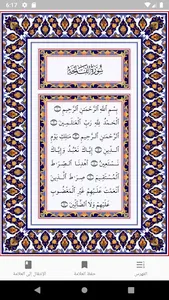 6:17
سُورَةُ الفَاتِحَةِ
بِسْمِ اللَّهِ الرَّحْمَٰنِ الرَّحِيمِ ۝
الْحَمْدُ لِلَّهِ رَبِّ الْعَالَمِينَ ۝
الرَّحْمَٰنِ الرَّحِيمِ ۝ مَالِكِ يَوْمِ
الدِّينِ ۝ إِيَّاكَ نَعْبُدُ وَإِيَّاكَ
نَسْتَعِينُ ۝ اهْدِنَا الصِّرَاطَ
الْمُسْتَقِيمَ ۝ صِرَاطَ الَّذِينَ
أَنْعَمْتَ عَلَيْهِمْ غَيْرِ الْمَغْضُوبِ
عَلَيْهِمْ وَلَا الضَّالِّينَ ۝
الفهرس
حفظ العلامة
الإنتقال إلى العلامة